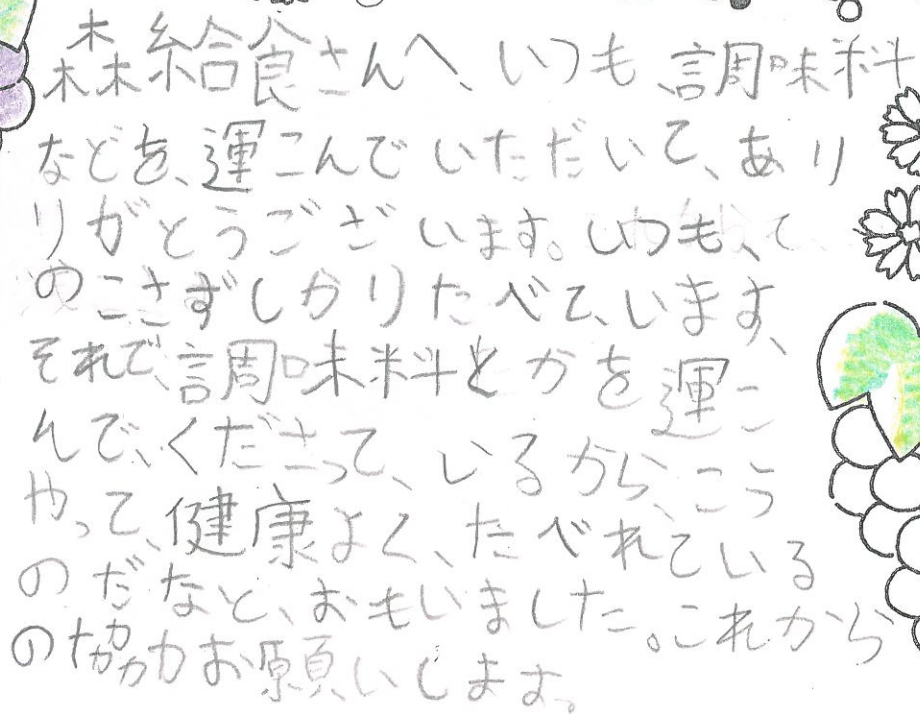 森給食さんへ、いつも、調味料
などを、運こんでいただいて、あり
りがとうございます。いつも、
のこさずしかりたべて、います、
それで、調味料とかを運こ
んで、くださって、いるから、こう
やって、健康よく、たべれている
のだなと、おもいました。これから
の協力お願いします。